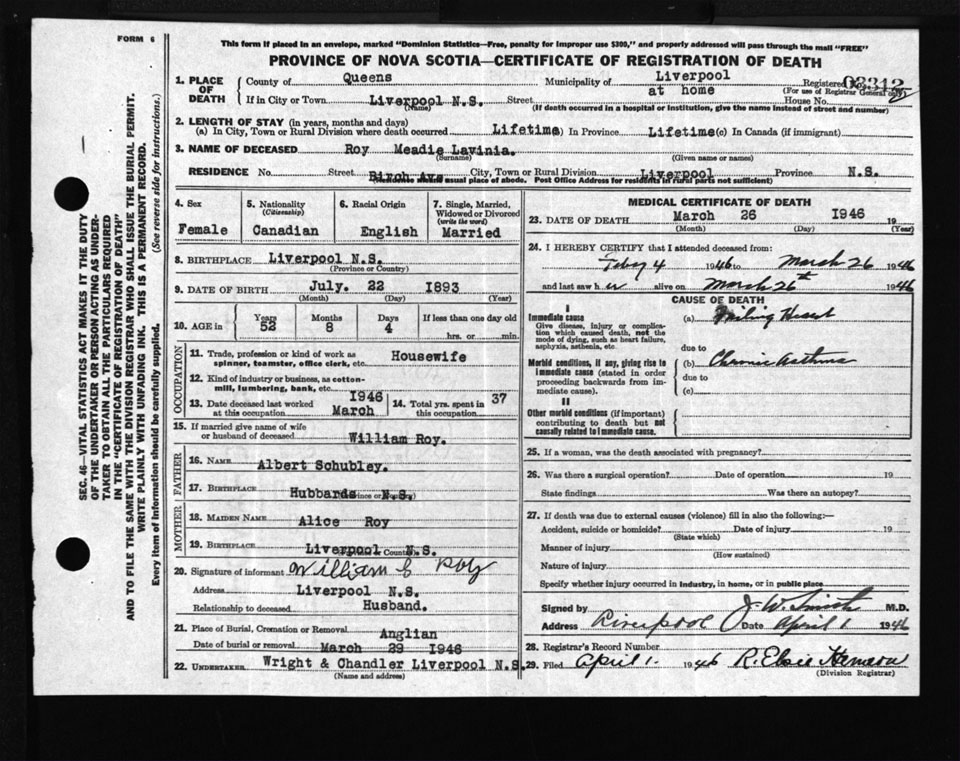 FORM 6
This form if placed in an envelope, marked "Dominion Statistics—Free, penalty for improper use $300," and properly addressed will pass through the mail "FREE"
PROVINCE OF NOVA SCOTIA—CERTIFICATE OF REGISTRATION OF DEATH
1. PLACE OF DEATH County of Queens Municipality of Liverpool Registered No. 03312
at home (For use of Registrar General only)
If in City or Town Liverpool N.S. Street House No.
(Name) (If death occurred in a hospital or institution, give the name instead of street and number)
2. LENGTH OF STAY (in years, months and days)
(a) In City, Town or Rural Division where death occurred Lifetime. In Province Lifetime (c) In Canada (if immigrant)
3. NAME OF DECEASED Roy Meadie Lavinia.
(Surname) (Given name or names)
RESIDENCE No. Street Birch Ave City, Town or Rural Division Liverpool Province N.S.
(Residence means usual place of abode. Post Office Address for residents in rural parts not sufficient)
4. Sex Female
5. Nationality (Citizenship) Canadian
6. Racial Origin English
7. Single, Married, Widowed or Divorced (write the word) Married
8. BIRTHPLACE Liverpool N.S.
(Province or Country)
9. DATE OF BIRTH July. 22 1893
(Month) (Day) (Year)
10. AGE in Years 52 Months 8 Days 4 If less than one day old hrs. or min.
OCCUPATION
11. Trade, profession or kind of work as spinner, teamster, office clerk, etc. Housewife
12. Kind of industry or business, as cotton-mill, lumbering, bank, etc.
13. Date deceased last worked at this occupation March 1946
14. Total yrs. spent in this occupation 37
15. If married give name of wife or husband of deceased William Roy.
FATHER
16. NAME Albert Schubley.
17. BIRTHPLACE Hubbards N.S.
(Province or Country)
MOTHER
18. MAIDEN NAME Alice Roy
19. BIRTHPLACE Liverpool N.S.
(Province or Country)
20. Signature of informant William C Roy
Address Liverpool N.S.
Relationship to deceased Husband.
21. Place of Burial, Cremation or Removal Anglian
Date of burial or removal March 29 1946
22. UNDERTAKER Wright & Chandler Liverpool N.S.
(Name and address)
MEDICAL CERTIFICATE OF DEATH
23. DATE OF DEATH March 26 1946 19
(Month) (Day) (Year)
24. I HEREBY CERTIFY that I attended deceased from:
Feby 4 1946 to March 26 1946
and last saw her alive on March 26th 1946
CAUSE OF DEATH
I
Immediate cause (a) Failing Heart
Give disease, injury or complication which caused death, not the mode of dying, such as heart failure, asphyxia, asthenia, etc.
due to
Morbid conditions, if any, giving rise to immediate cause (stated in order proceeding backwards from immediate cause).
(b) Chronic Asthma
due to
(c)
II
Other morbid conditions (if important) contributing to death but not causally related to immediate cause.
25. If a woman, was the death associated with pregnancy?
26. Was there a surgical operation? Date of operation 19
State findings Was there an autopsy?
27. If death was due to external causes (violence) fill in also the following:—
Accident, suicide or homicide? Date of injury 19
(State which)
Manner of injury
(How sustained)
Nature of injury
Specify whether injury occurred in industry, in home, or in public place
Signed by J. W. Smith M.D.
Address Liverpool Date April 1 1946
28. Registrar's Record Number
29. Filed April 1. 1946 R. Elsie
(Division Registrar)
SEC. 46—VITAL STATISTICS ACT MAKES IT THE DUTY
OF THE UNDERTAKER OR PERSON ACTING AS UNDER-
TAKER TO OBTAIN ALL THE PARTICULARS REQUIRED
IN THE "CERTIFICATE OF REGISTRATION OF DEATH"
AND TO FILE THE SAME WITH THE DIVISION REGISTRAR WHO SHALL ISSUE THE BURIAL PERMIT.
WRITE PLAINLY WITH UNFADING INK. THIS IS A PERMANENT RECORD.
Every item of information should be carefully supplied. (See reverse side for instructions.)